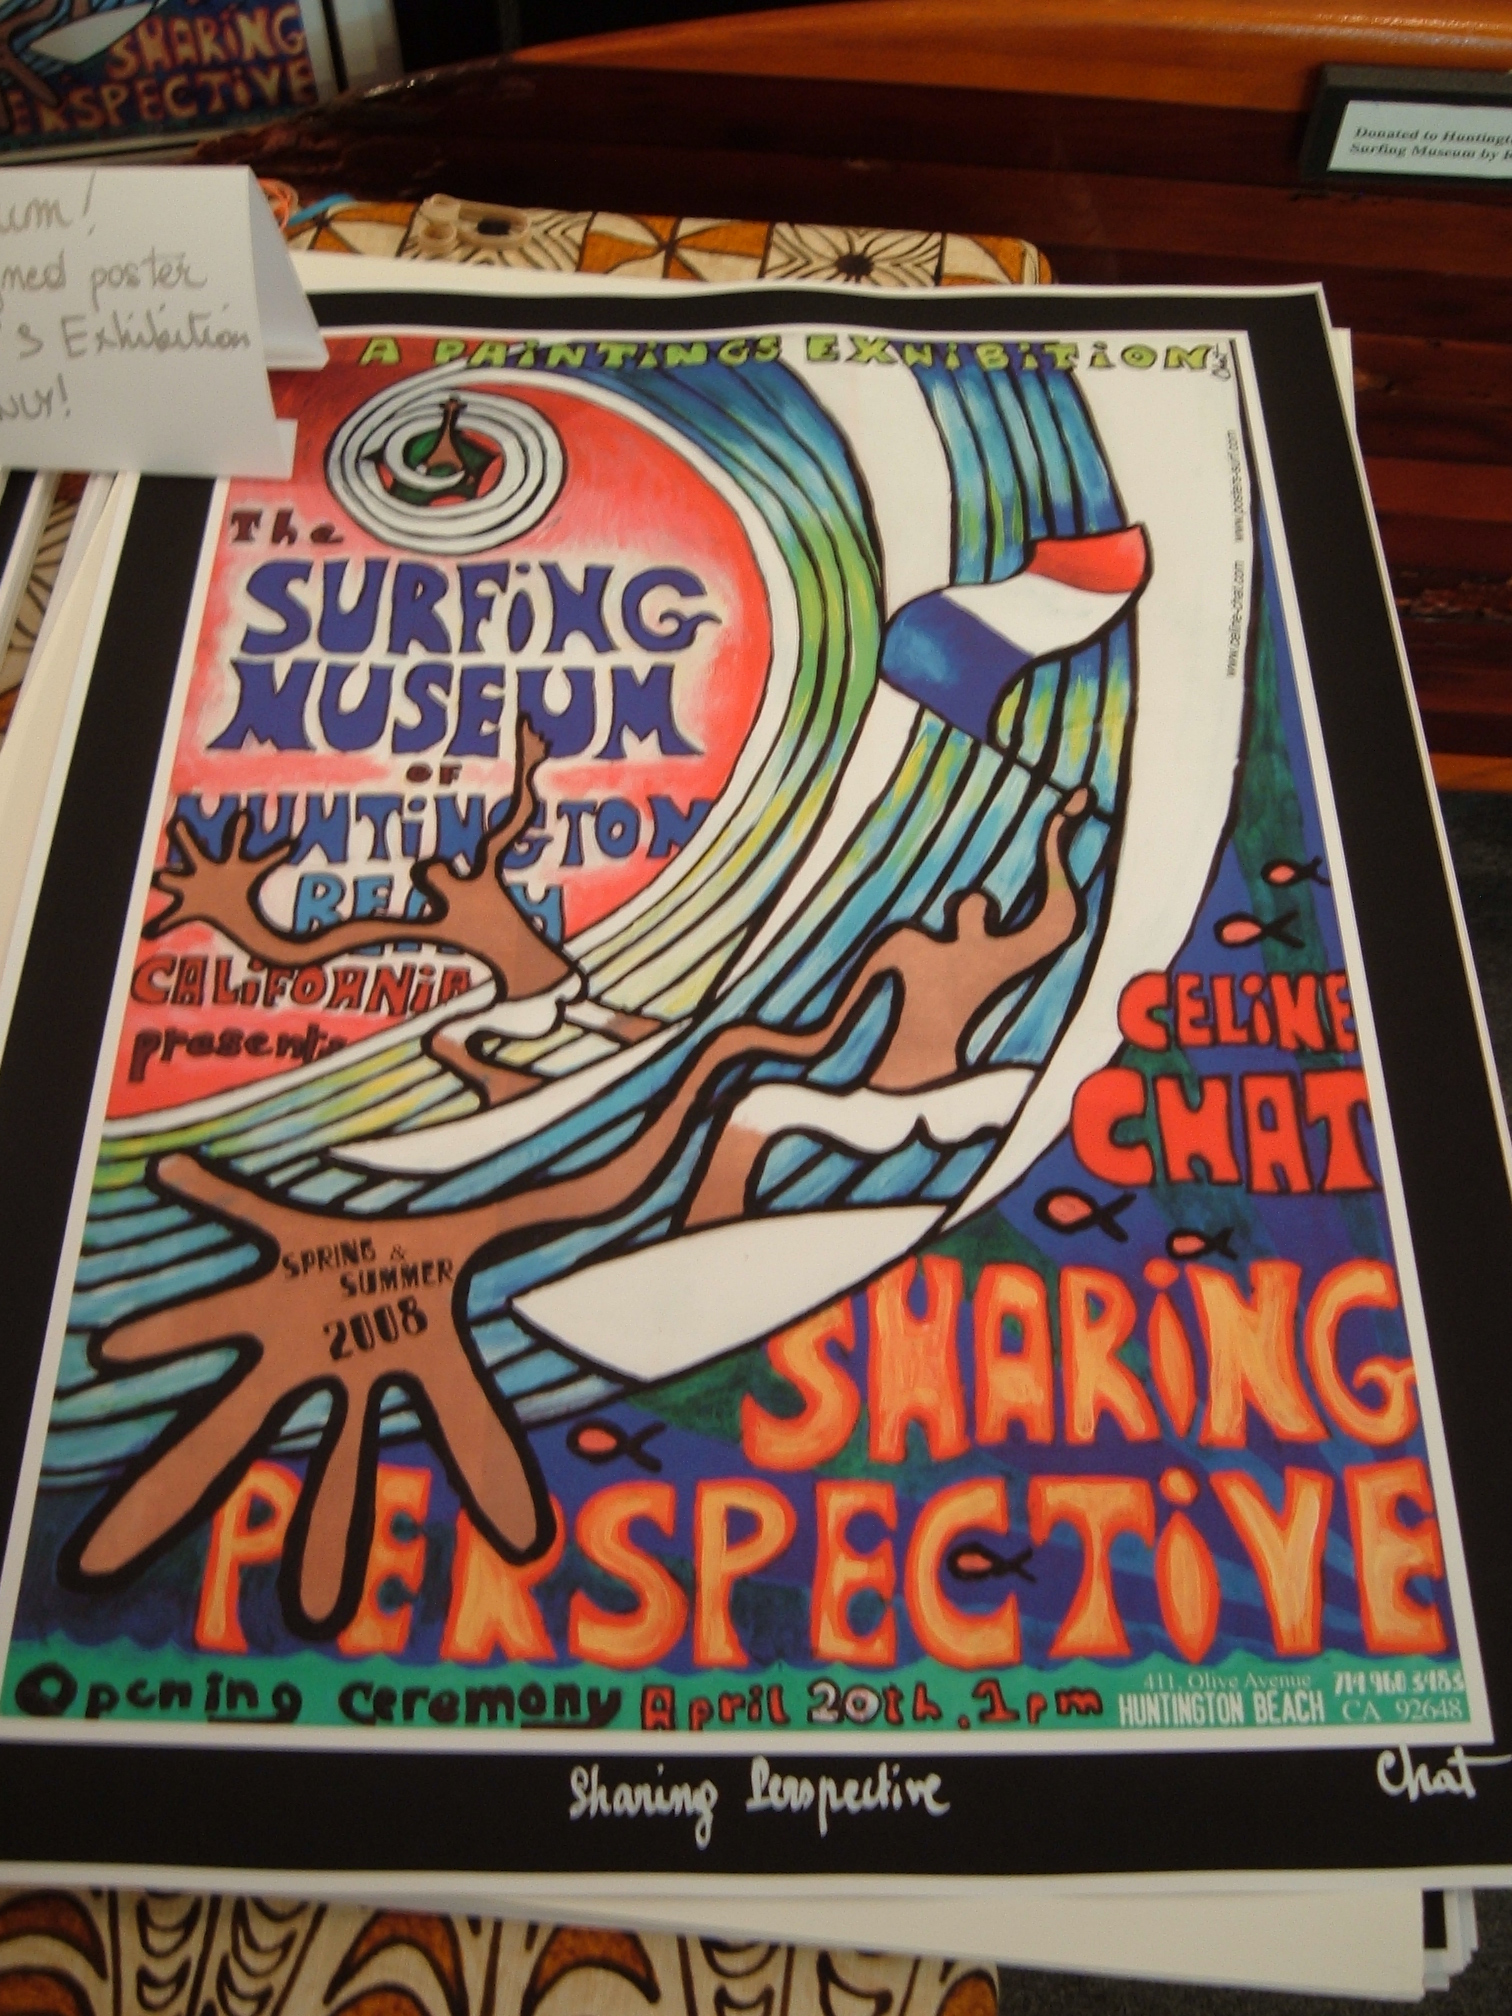 SHARING
PERSPECTIVE
Donated to
Surfing Museum by
poster
Exhibition
A PAINTINGS EXHIBITION
Chat
www.celine-chat.com www.posters-surf.com
The
SURFING
MUSEUM
OF
HUNTINGTON
BEACH
CALIFORNIA
presents
CELINE
CHAT
SPRING &
SUMMER
2008
SHARING
PERSPECTIVE
Opening Ceremony April 20th. 1pm
411, Olive Avenue 714 960 3483
HUNTINGTON BEACH CA 92648
Sharing Perspective
Chat